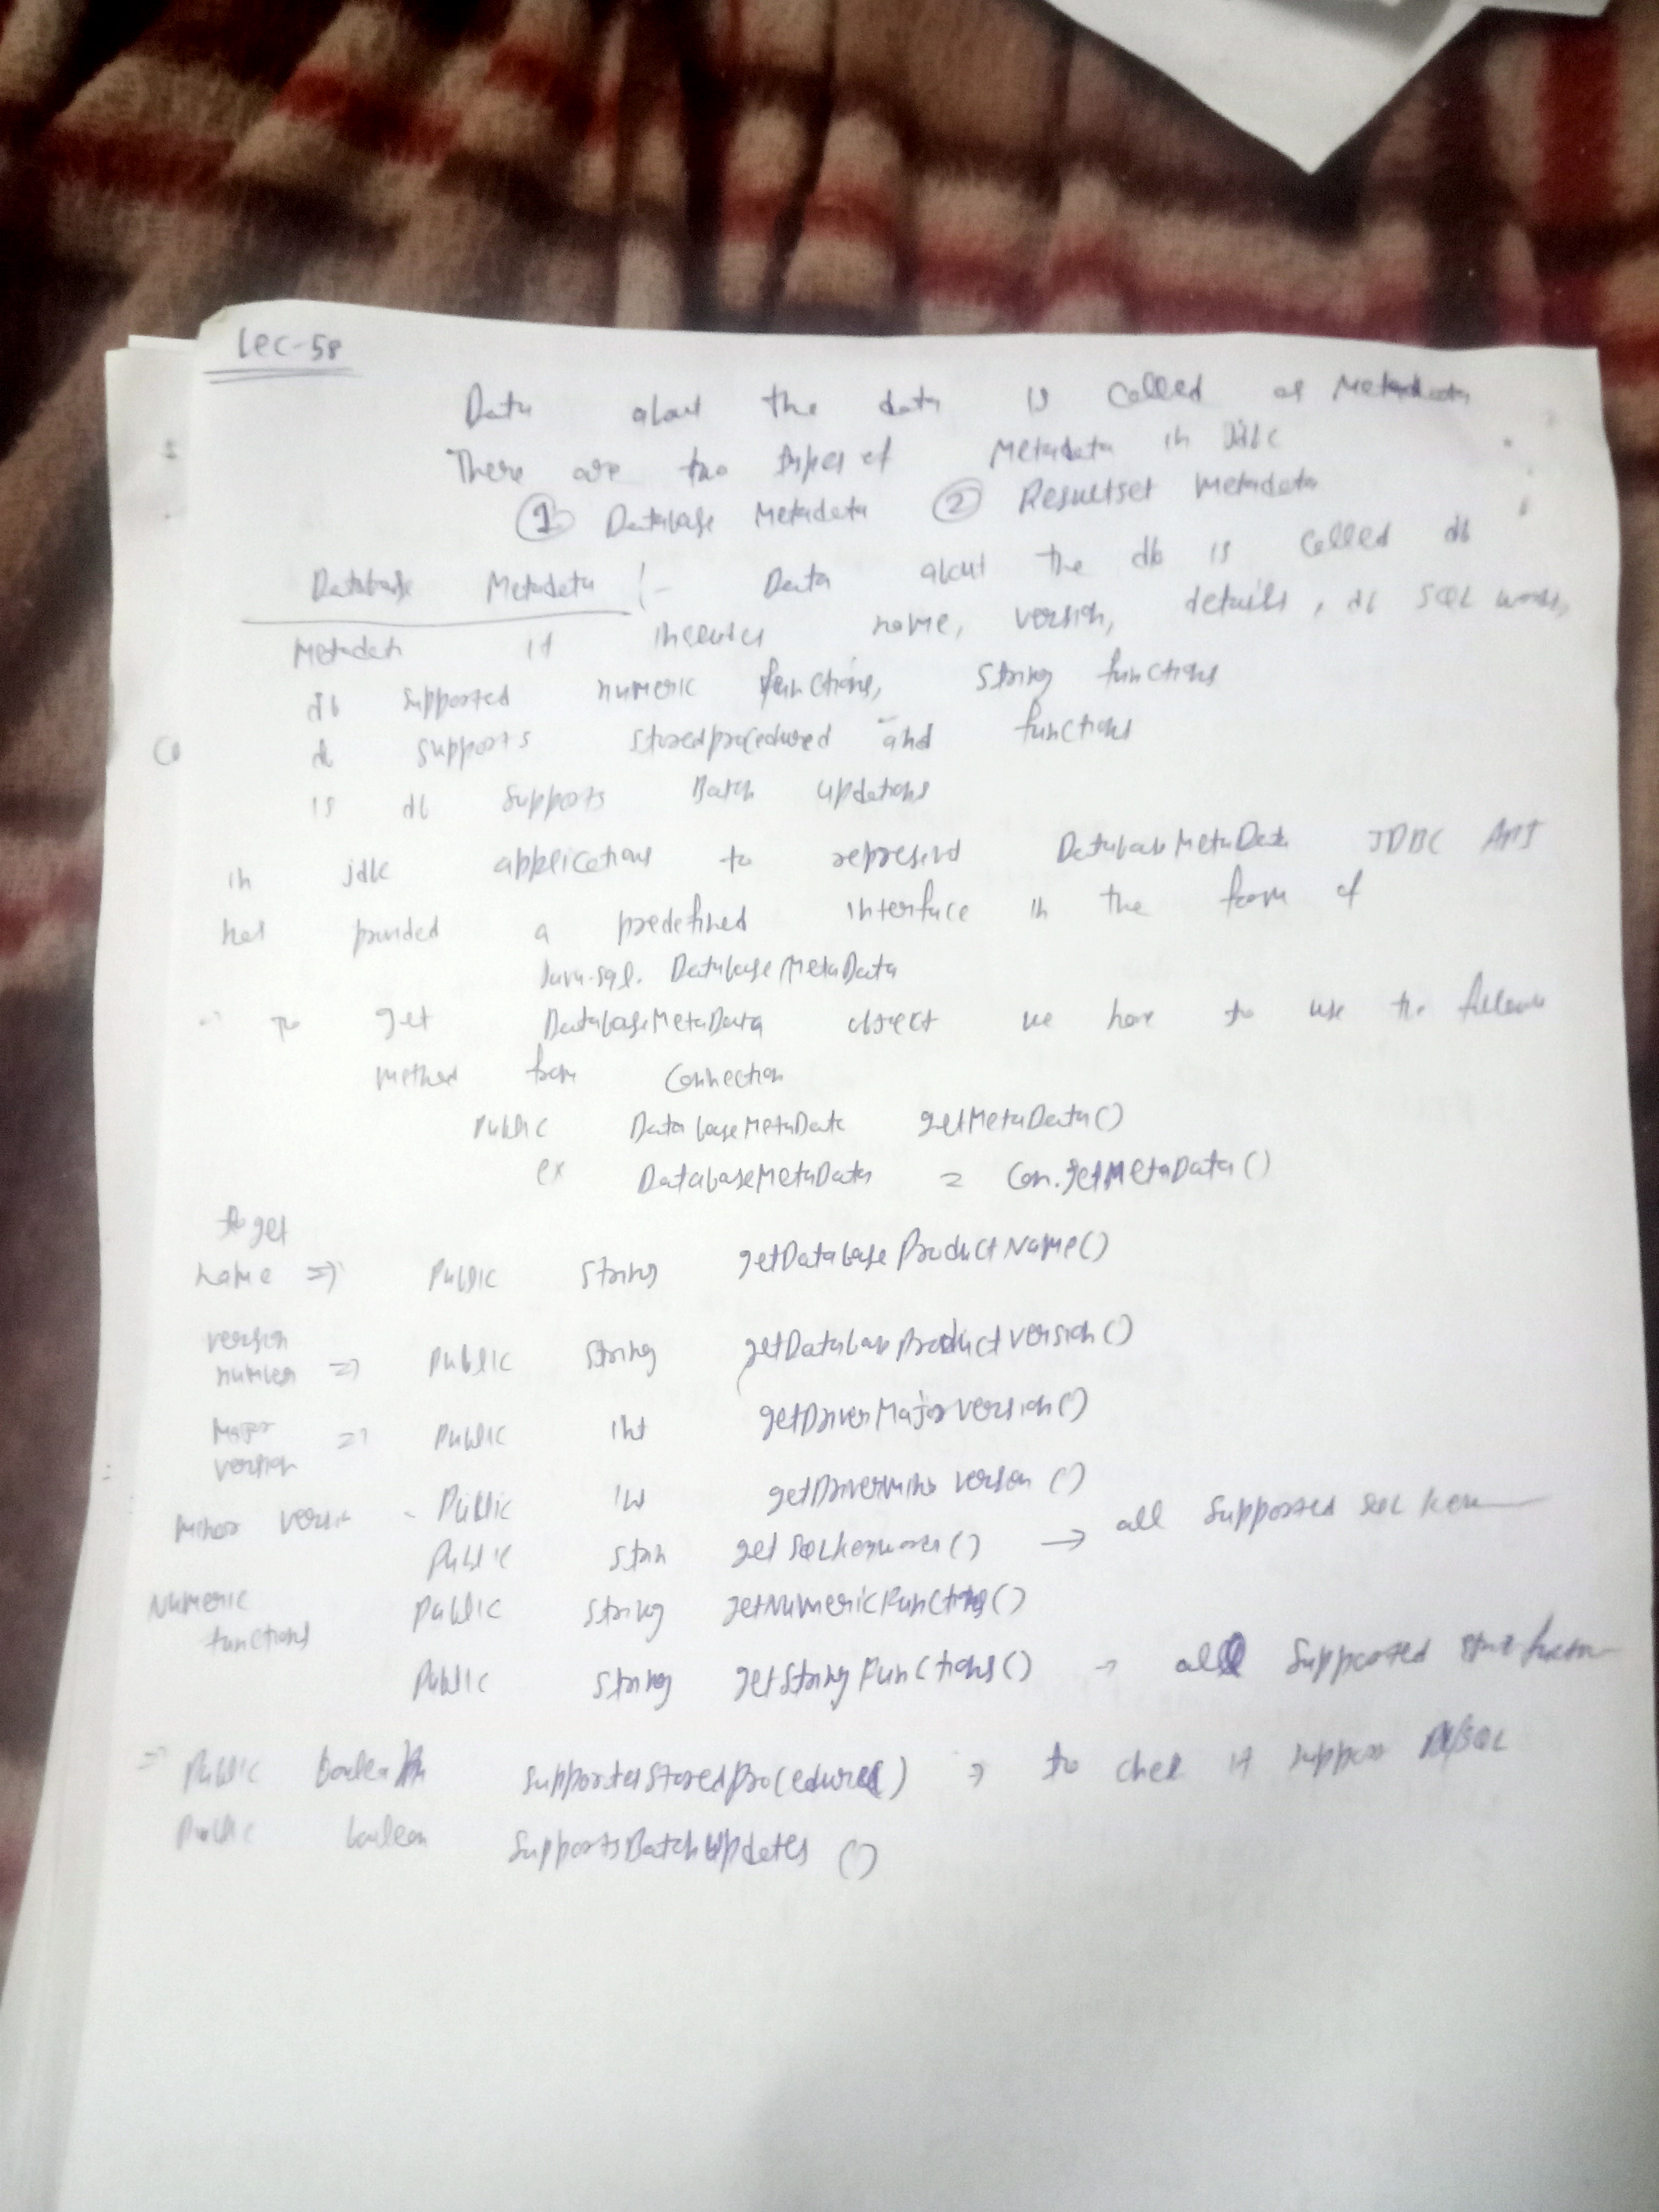 Lec-58
Data about the data is called as Metadata
There are two types of Metadata in Jdbc
① Database Metadata ② Resultset Metadata
Database Metadata :- Data about the db is called db
Metadata it includes name, version, details, db SQL words,
db supported numeric functions, String functions
db supports storedprocedured and functions
is db supports Batch updations
in jdbc applications to represent DatabaseMetaData JDBC API
has provided a predefined interface in the form of
Java.sql. DatabaseMetaData
To get DatabaseMetaData object we have to use the
method from Connection
Public DatabaseMetaData getMetaData()
ex DatabaseMetaData = Con.getMetaData()
to get
name => Public String getDatabaseProductName()
version
number => Public String getDatabaseProductVersion()
Major
version => Public int getDriverMajorVersion()
Minor Public int version ()
Public get () → all Supported SQL
Numeric
functions Public String getNumericFunctions()
Public String getStringFunctions() → all Supported
=> Public Boolean StoredProcedures) → to it
Public boolean SupportsBatchUpdates ()